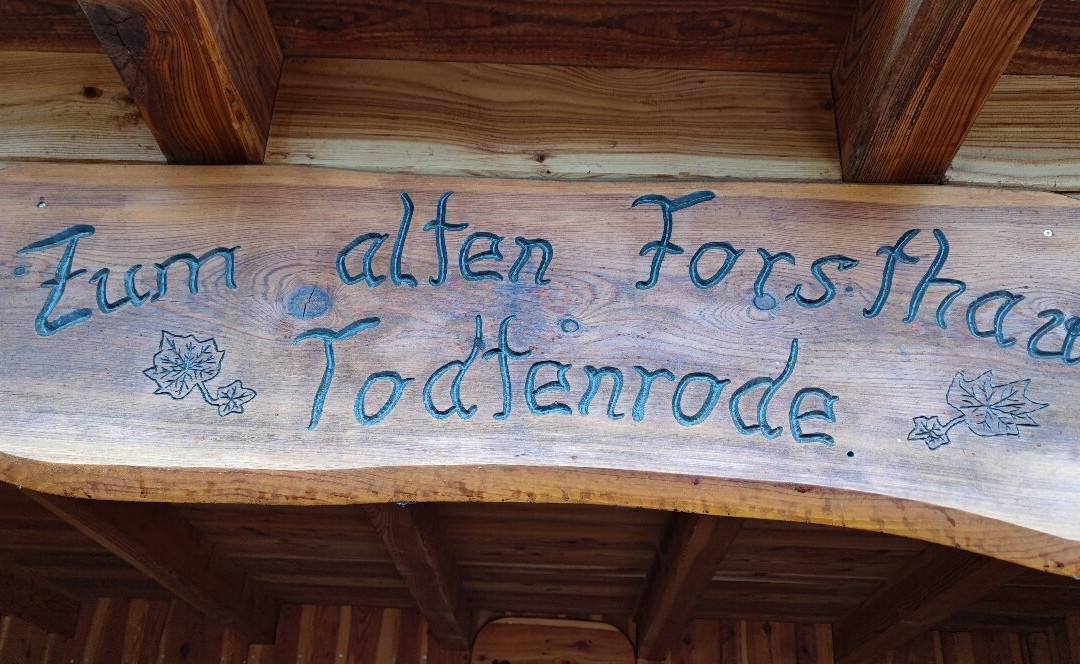 Zum alten Forsthau
Todtenrode